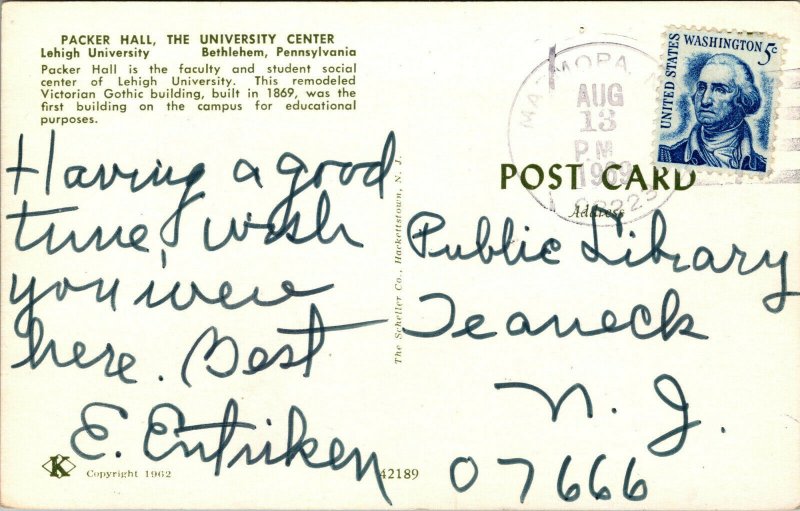 PACKER HALL, THE UNIVERSITY CENTER
Lehigh University Bethlehem, Pennsylvania
Packer Hall is the faculty and student social
center of Lehigh University. This remodeled
Victorian Gothic building, built in 1869, was the
first building on the campus for educational
purposes.
Having a good
time, wish
you were
here. Best
E. Entriken
K
Copyright 1962
42189
The Scheller Co., Hackettstown, N. J.
UNITED STATES
WASHINGTON 5c
AUG
13
P.M
1969
08223
POST CARD
Address
Public Library
Teaneck
N. J.
07666